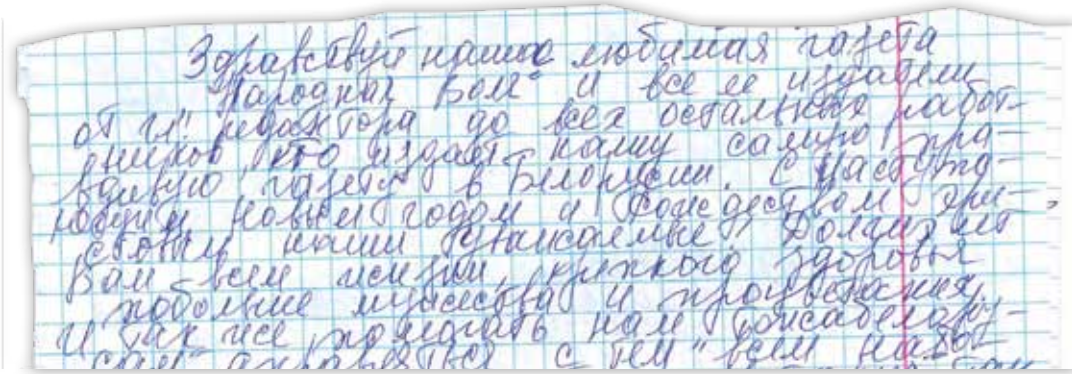 Здравствуй наша любимая газета
"Народная Воля" и все ее издатели
от гл. редактора до всех остальных работ-
ников, кто издает нашу самую пра-
вдивую газету в Белоруссии. С Наступа-
ющим Новым годом и Рождеством Хри-
стовым наши уважаемые. Долгих лет
Вам всем жизни, крепкого здоровья
побольше мужества и процветания,
И так же помогать нам
с тем всем